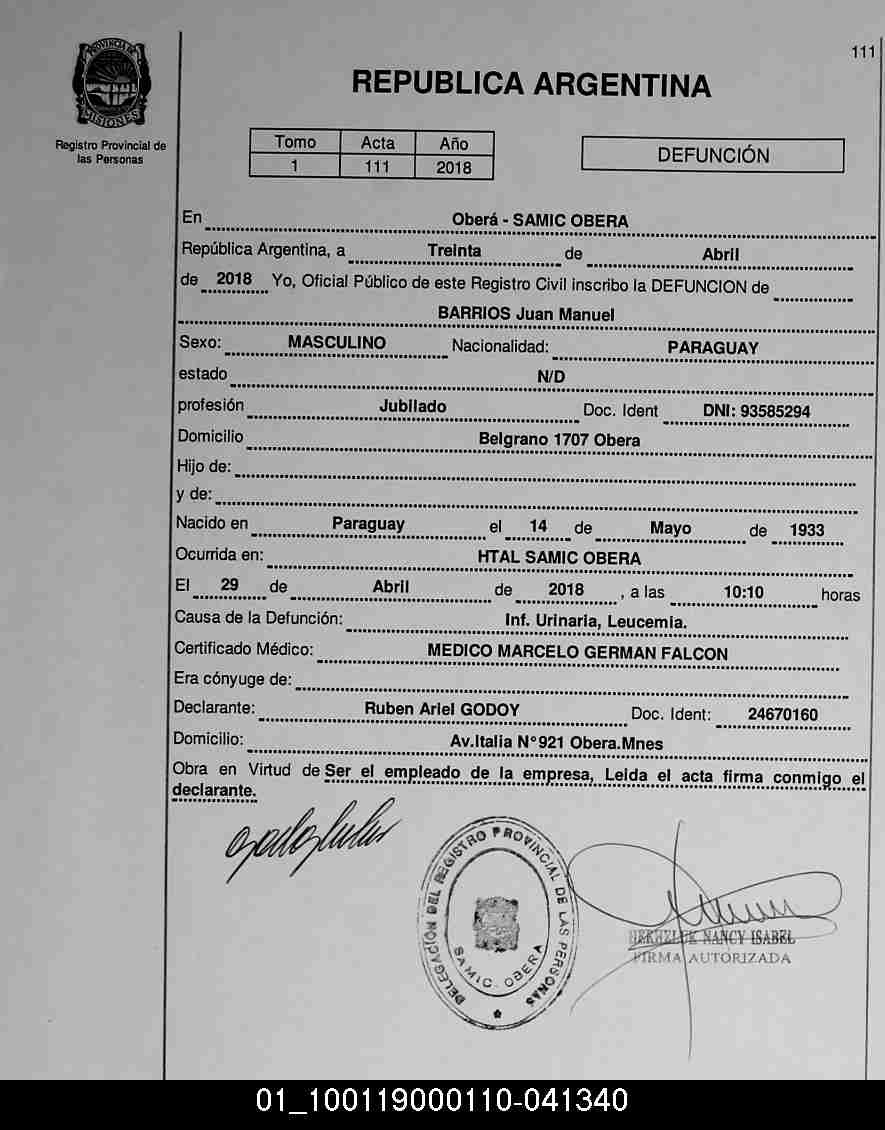 111
PROVINCIA DE
MISIONES
Registro Provincial de
las Personas
REPUBLICA ARGENTINA
Tomo Acta Año
1 111 2018
DEFUNCIÓN
En Oberá - SAMIC OBERA
República Argentina, a Treinta de Abril
de 2018 Yo, Oficial Público de este Registro Civil inscribo la DEFUNCION de
BARRIOS Juan Manuel
Sexo: MASCULINO Nacionalidad: PARAGUAY
estado N/D
profesión Jubilado Doc. Ident DNI: 93585294
Domicilio Belgrano 1707 Obera
Hijo de:
y de:
Nacido en Paraguay el 14 de Mayo de 1933
Ocurrida en: HTAL SAMIC OBERA
El 29 de Abril de 2018 , a las 10:10 horas
Causa de la Defunción: Inf. Urinaria, Leucemia.
Certificado Médico: MEDICO MARCELO GERMAN FALCON
Era cónyuge de:
Declarante: Ruben Ariel GODOY Doc. Ident: 24670160
Domicilio: Av.Italia N°921 Obera.Mnes
Obra en Virtud de Ser el empleado de la empresa, Leida el acta firma conmigo el
declarante.
DELEGACIÓN DEL REGISTRO PROVINCIAL DE LAS PERSONAS
SAMIC. OBERA
NANCY ISABEL
FIRMA AUTORIZADA
01_100119000110-041340